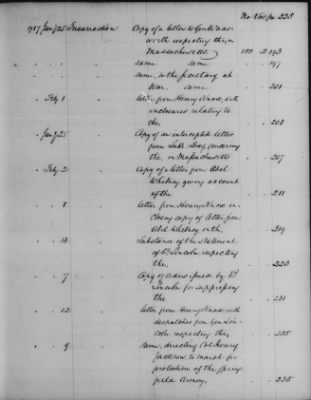 No. Vol. pa. 225
1787 Jany 25 Insurrection Copy of a letter to Gen
worth respecting the, in
Massachusetts. 150 . 2. 193
same same 197
same, to the Secretary at
War same 201
Feby 1 letter from Henry Knox, with
inclosures relating to
the 203
Jany 25 Copy of an intercepted letter
from Luke Day, concerning
the in Massachusetts 207
Feby 2 Copy of a letter from Abel
Whitney, giving account
of the 211
8 letter from Henry Knox in-
closing copy of letter from
Abel Whitney on the 219
Substance of the statement
of Lincoln respecting
the 223
7 Copy of orders issued by
Lincoln for suppressing
the 231
12 letter from Henry Knox with
despatches from Gen Lin-
coln respecting the
9 same, directing Col Henry
Jackson to march for
protection of the Spring-
field Armory. 235